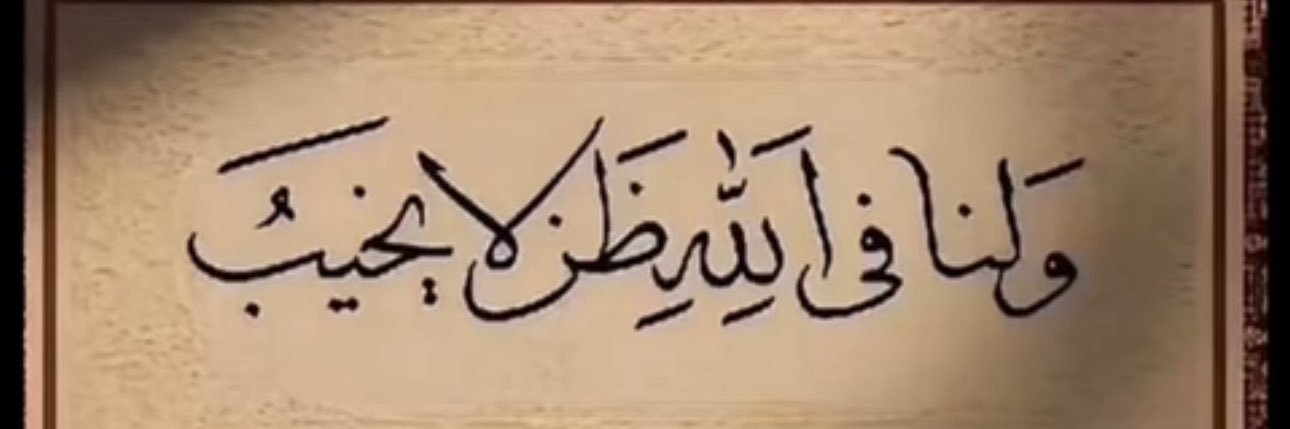 وَلنا في اللّٰهِ ظَن لا يخيبُ